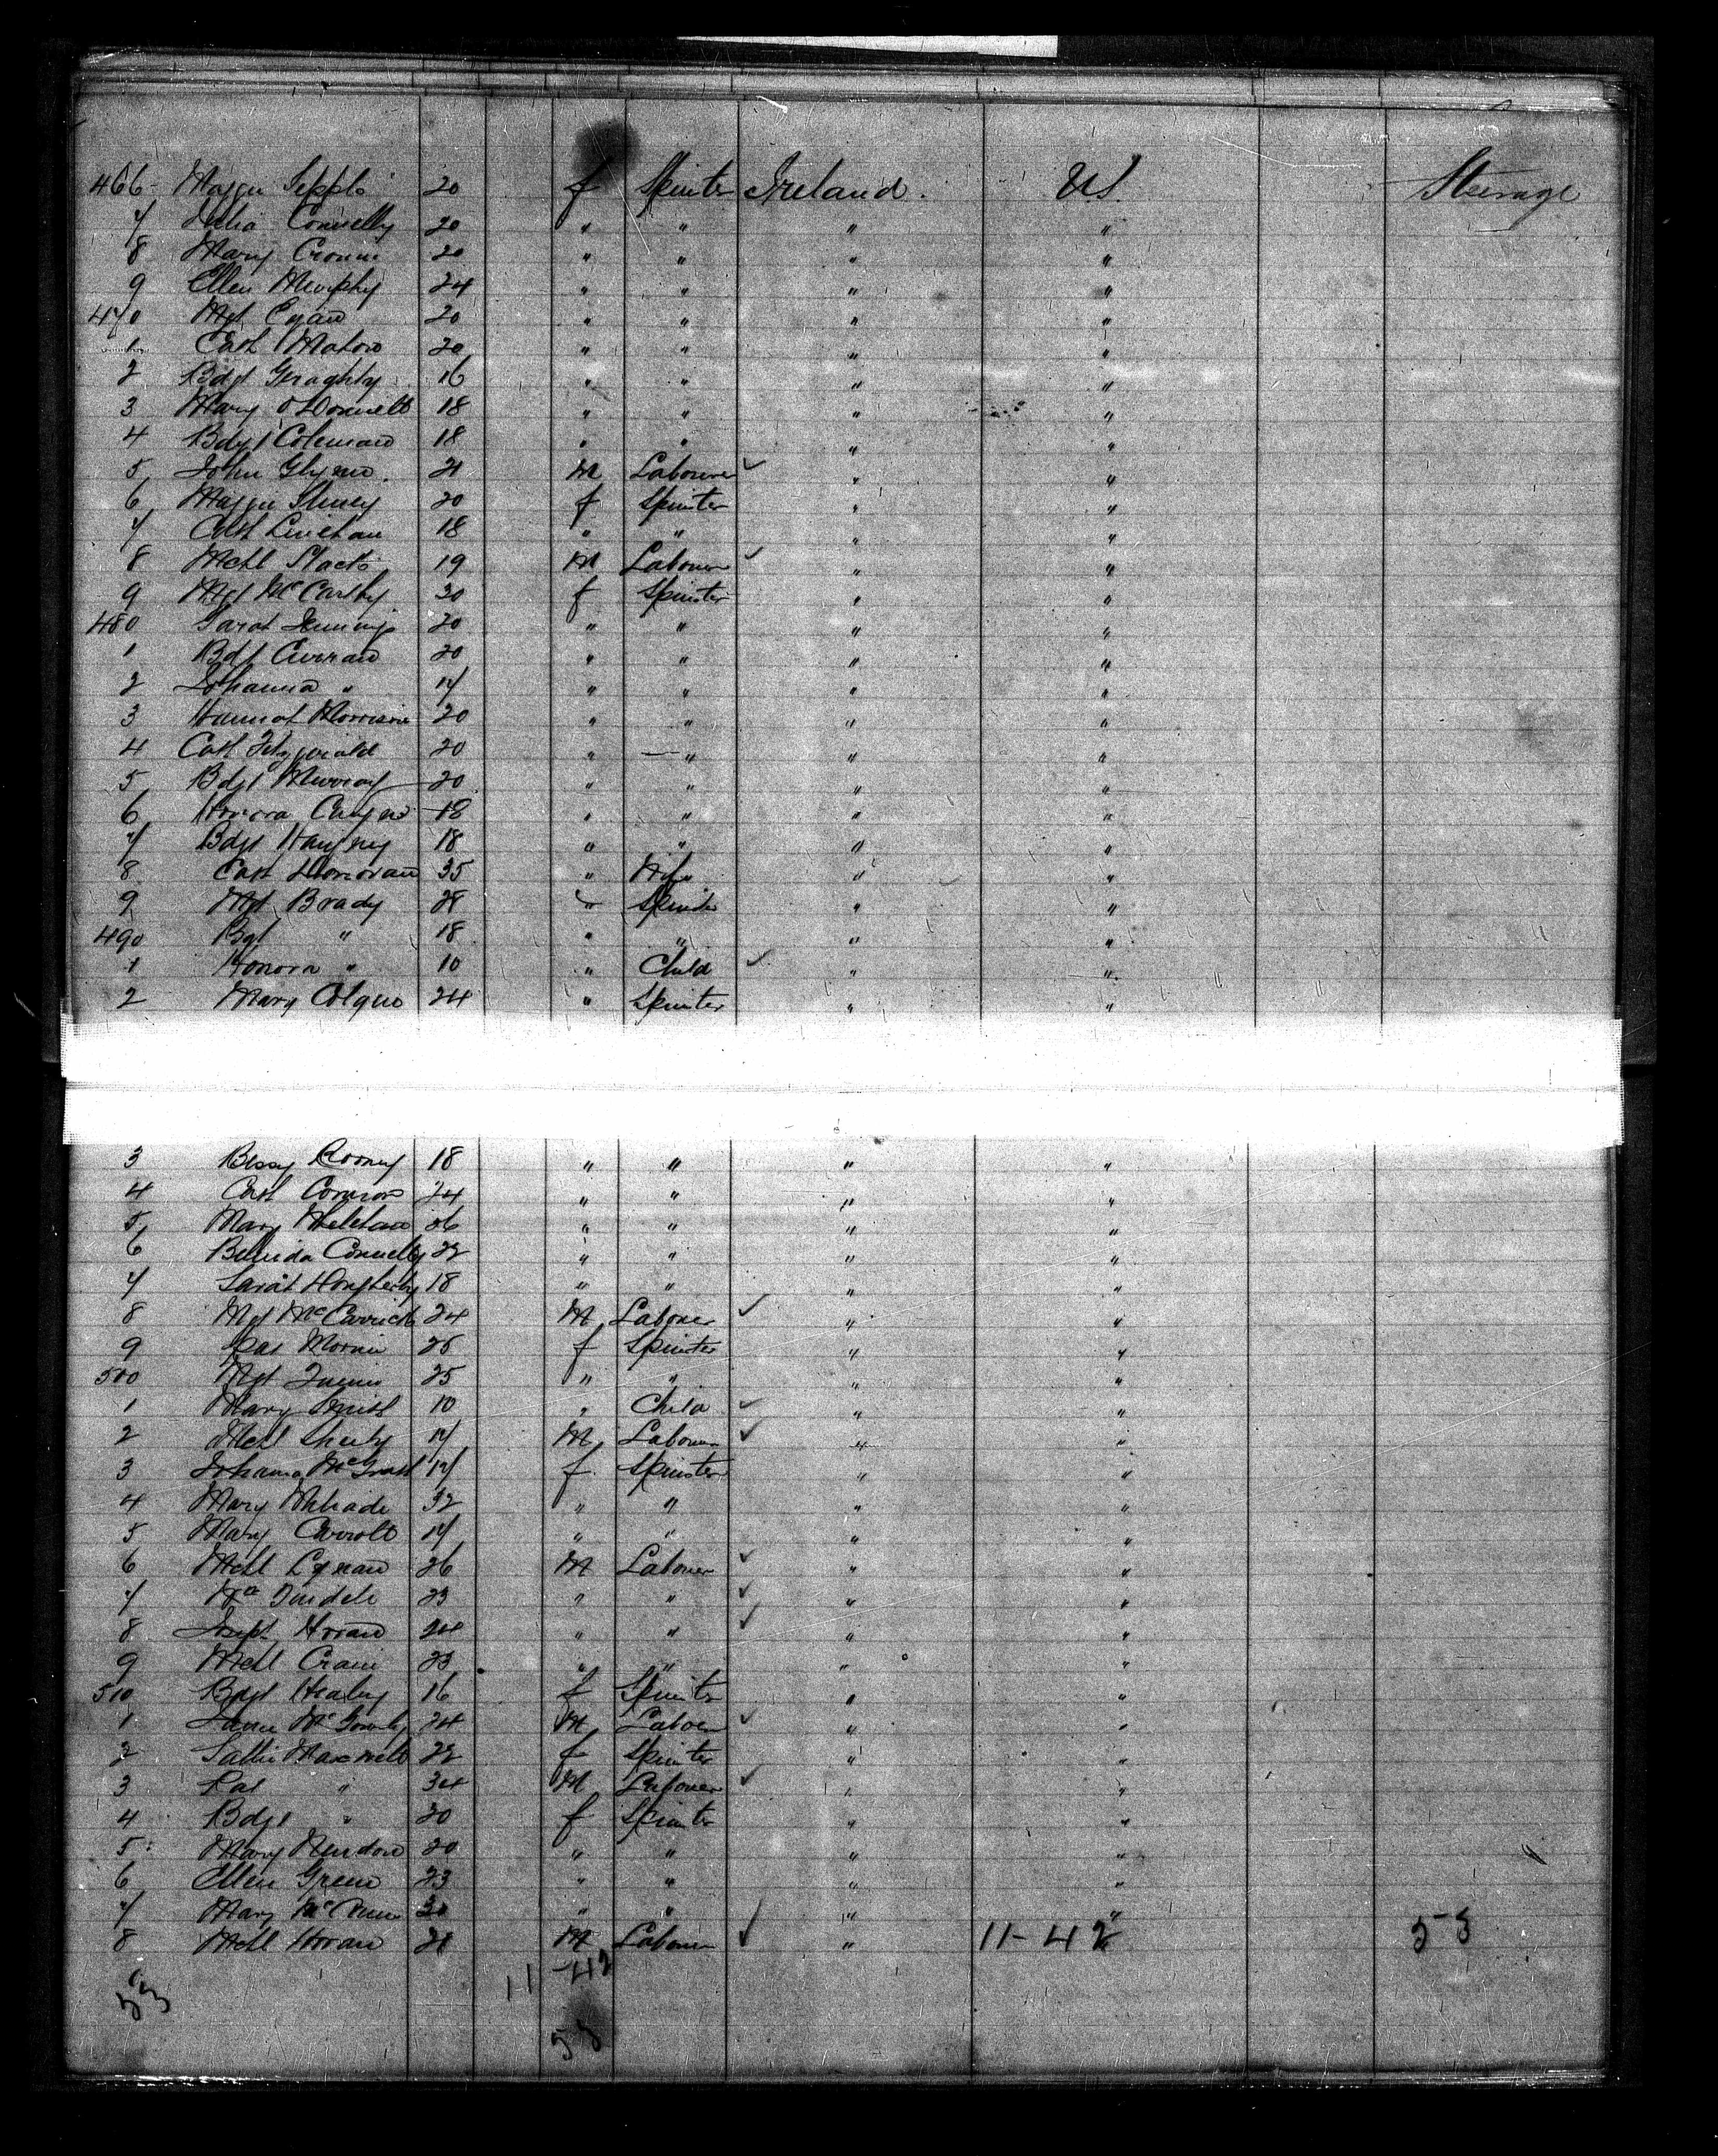 466 - Maggie 20 f Spinster Ireland. US. Steerage
7 Delia Connelly 20 " " " "
8 Mary Cronin 20 " " " "
9 Ellen Murphy 24 " " " "
470 Mgt Egan 20 " " " "
1 Cath Mahon 20 " " " "
2 Bdgt Geraghty 16 " " " "
3 Mary O'Donnell 18 " " " "
4 Bdgt Coleman 18 " " " "
5 John Glynn 21 M Labourer " "
6 Maggie 20 f Spinster " "
7 Cath Linehan 18 " " " "
8 Mchl Stack 19 M Labourer " "
9 Mgt McCarthy 20 f Spinster " "
480 Sarah 20 " " " "
1 Bdgt Curran 20 " " " "
2 Johanna " 17 " " " "
3 Hannah Morrison 20 " " " "
4 Cath Fitzgerald 20 " " " "
5 Bdgt Murray 20 " " " "
6 Honora 18 " " " "
7 Bdgt 18 " " " "
8 Cath Donovan 35 " Wife " "
9 Mgt Brady 28 " Spinster " "
490 Bgt " 18 " " " "
1 Honora " 10 " Child " "
2 Mary 24 " Spinster " "
3 Bessy Rooney 18 " " " "
4 Cath Connors 24 " " " "
5 Mary Whelehan 26 " " " "
6 Belinda Connelly 22 " " " "
7 Sarah Dougherty 18 " " " "
8 Mgt McCarrick 24 M Labourer " "
9 Moran 25 f Spinster " "
500 Mgt 25 " " " "
1 Mary 10 " Child " "
2 Mchl Sheehy 17 M Labourer " "
3 Johanna McGrath 17 f Spinster " "
4 Mary 32 " " " "
5 Mary Carroll 17 " " " "
6 Mchl 26 M Labourer " "
7 Wm 23 " " " "
8 Josph Horan 24 " " " "
9 Mchl 23 " " " "
510 Bdgt Healey 16 f Spinster " "
1 24 M Labour " "
2 Sallie Maxwell 22 f Spinster " "
3 Pat " 34 M Labourer " "
4 Bdgt " 20 f Spinster " "
5 Mary 20 " " " "
6 Ellen Green 23 " " " "
7 Mary 30 " " " "
8 Mchl Horan 21 M Labourer " " 11-42 53
53 11 -42
53